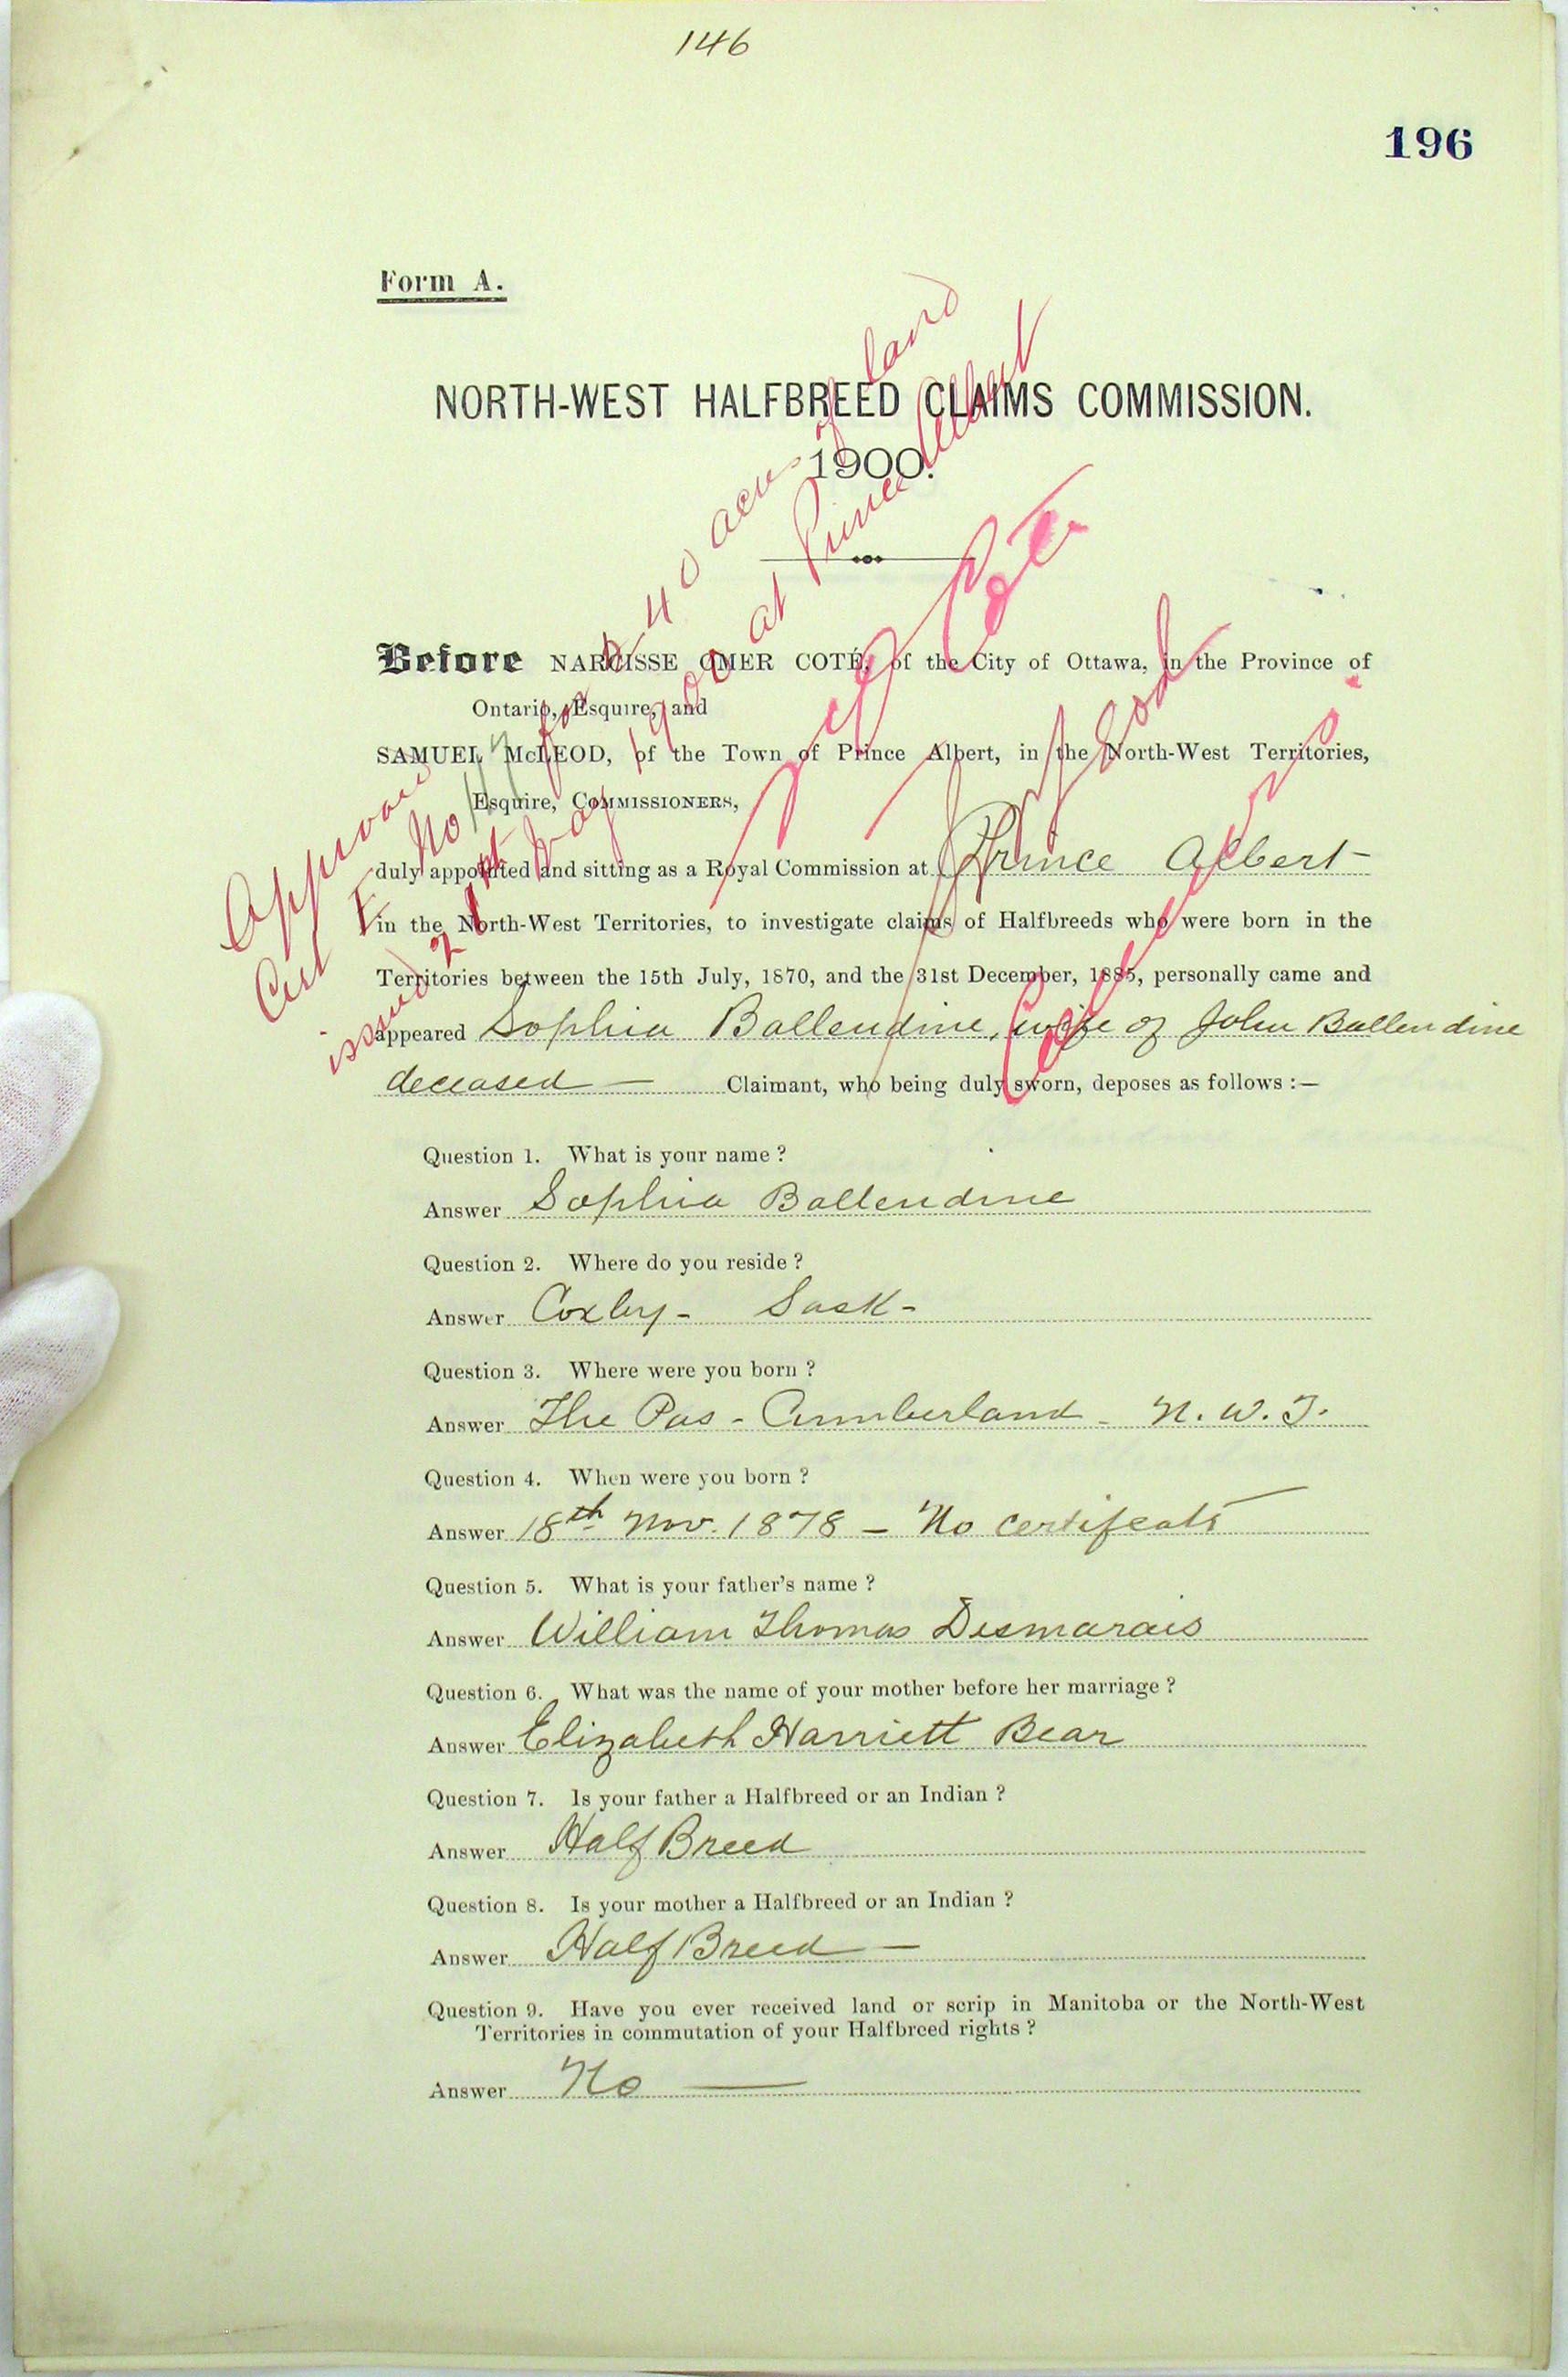 146
196
Form A.
NORTH-WEST HALFBREED CLAIMS COMMISSION.
1900.
Before NARCISSE OMER COTÉ, of the City of Ottawa, in the Province of
Ontario, Esquire, and
SAMUEL McLEOD, of the Town of Prince Albert, in the North-West Territories,
Esquire, COMMISSIONERS,
duly appointed and sitting as a Royal Commission at Prince Albert -
in the North-West Territories, to investigate claims of Halfbreeds who were born in the
Territories between the 15th July, 1870, and the 31st December, 1885, personally came and
appeared Sophia Ballendine, wife of John Ballendine
deceased — Claimant, who being duly sworn, deposes as follows :—
Approved
Cert No 117 for 240 acres of land
issued 21st May 1900 at Prince Albert
N O Coté
J McLeod
Commissioners
Question 1. What is your name ?
Answer Sophia Ballendine
Question 2. Where do you reside ?
Answer Coxby - Sask -
Question 3. Where were you born ?
Answer The Pas - Cumberland - N. W. T.
Question 4. When were you born ?
Answer 18th Nov. 1878 - No certificate
Question 5. What is your father's name ?
Answer William Thomas Desmarais
Question 6. What was the name of your mother before her marriage ?
Answer Elizabeth Harriett Bear
Question 7. Is your father a Halfbreed or an Indian ?
Answer Half Breed
Question 8. Is your mother a Halfbreed or an Indian ?
Answer Half Breed —
Question 9. Have you ever received land or scrip in Manitoba or the North-West
Territories in commutation of your Halfbreed rights ?
Answer No —